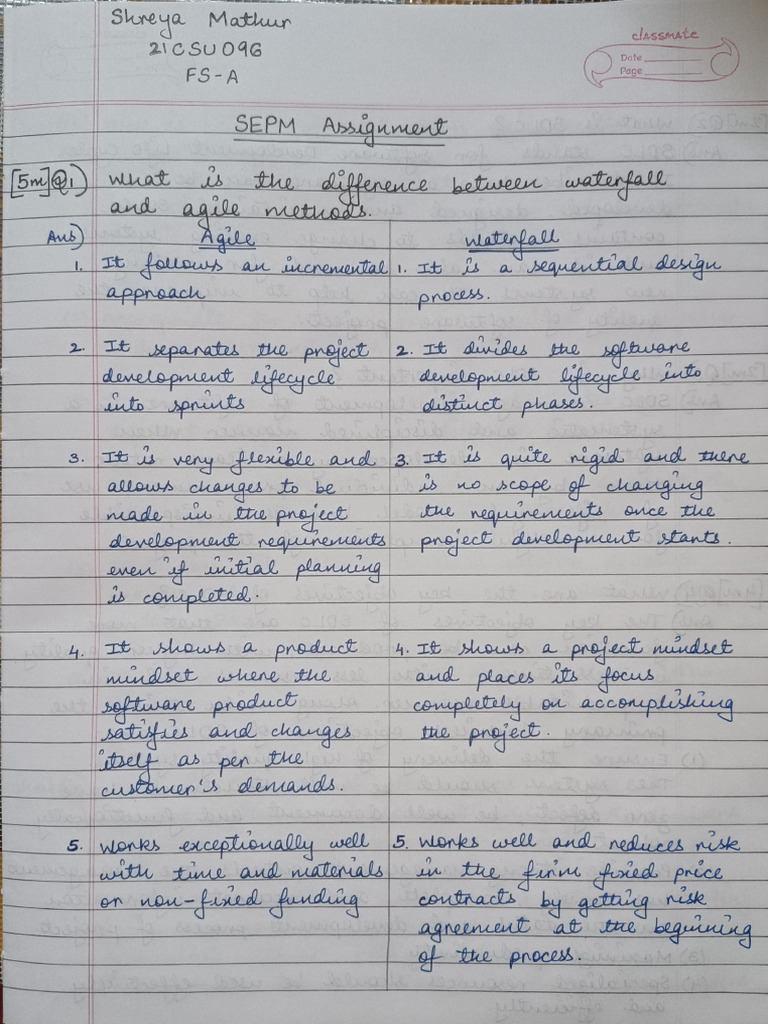 Shreya Mathur
21CSU096
FS-A
classmate
Date
Page
SEPM Assignment
[5m] Q1) What is the difference between waterfall
and agile methods.
Ans) Agile
1. It follows an incremental
approach
2. It separates the project
development lifecycle
into sprints
3. It is very flexible and
allows changes to be
made in the project
development requirements
even if initial planning
is completed.
4. It shows a product
mindset where the
software product
satisfies and changes
itself as per the
customer's demands.
5. Works exceptionally well
with time and materials
or non-fixed funding
Waterfall
1. It is a sequential design
process.
2. It divides the software
development lifecycle into
distinct phases.
3. It is quite rigid and there
is no scope of changing
the requirements once the
project development starts.
4. It shows a project mindset
and places its focus
completely on accomplishing
the project.
5. Works well and reduces risk
in the firm fixed price
contracts by getting risk
agreement at the beginning
of the process.